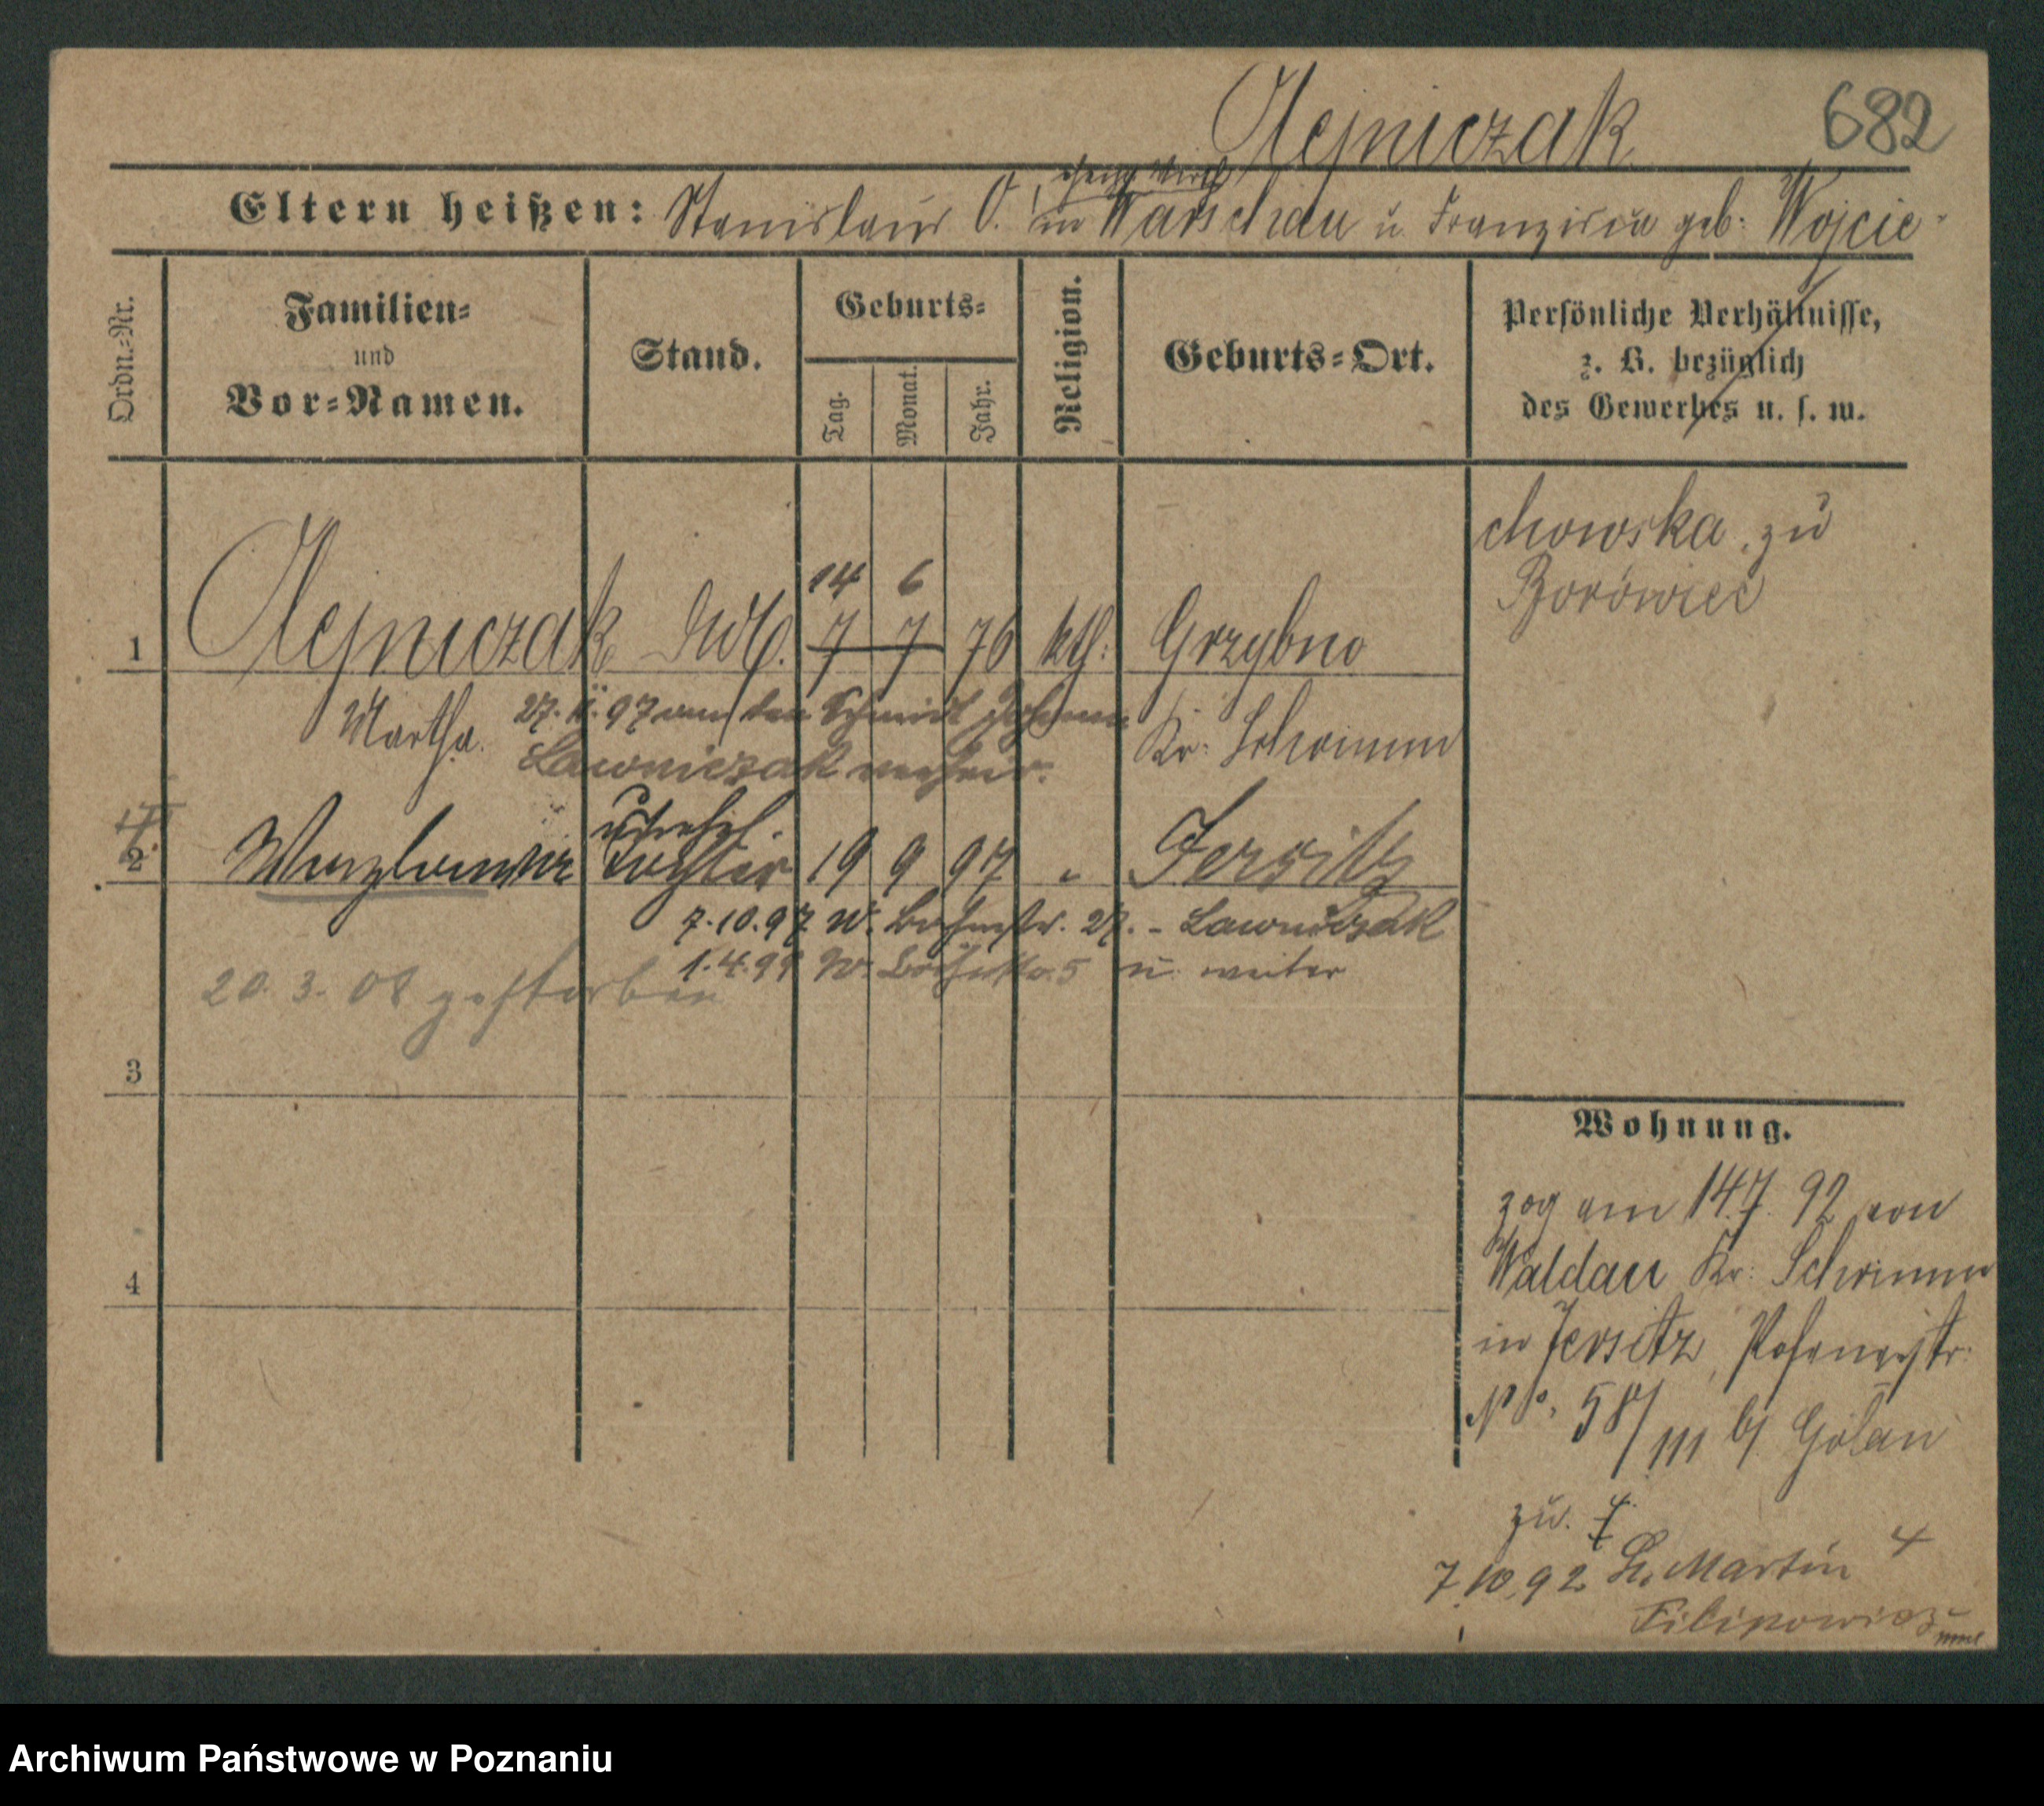 Olejniczak 682
Eltern heißen: Stanislaus O. in Warschau u. Franzisca geb. Wojcie-
Ordn.-Nr.
Familien-
und
Vor-Namen.
Stand.
Geburts-
Tag.
Monat.
Jahr.
Religion.
Geburts-Ort.
Persönliche Verhältnisse,
z. B. bezüglich
des Gewerbes u. s. w.
chowska, zu
Borowiec
14 6
1 Olejniczak 7 7 76 kth: Grzybno
Martha. 27. 97 den Schmidt Johann Kr: Schrimm
Lawniczak verheir.
2 Tochter 19 9 97 " Jersitz
7.10.97 W. 27. - Lawniczak
1.4.99 W. 5 u. weiter
20. 3. 08 gestorben
3
4
Wohnung.
zog am 14.7. 92 von
Waldau Kr: Schrimm
in Jersitz, Posenerstr:
No. 58/III b/ Golan
zu.
7.10.92 St. Martin 4
Filipowicz
Archiwum Państwowe w Poznaniu